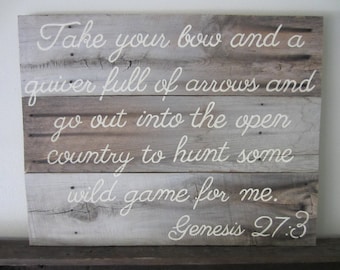 Take your bow and a
quiver full of arrows and
go out into the open
country to hunt some
wild game for me.
Genesis 27:3